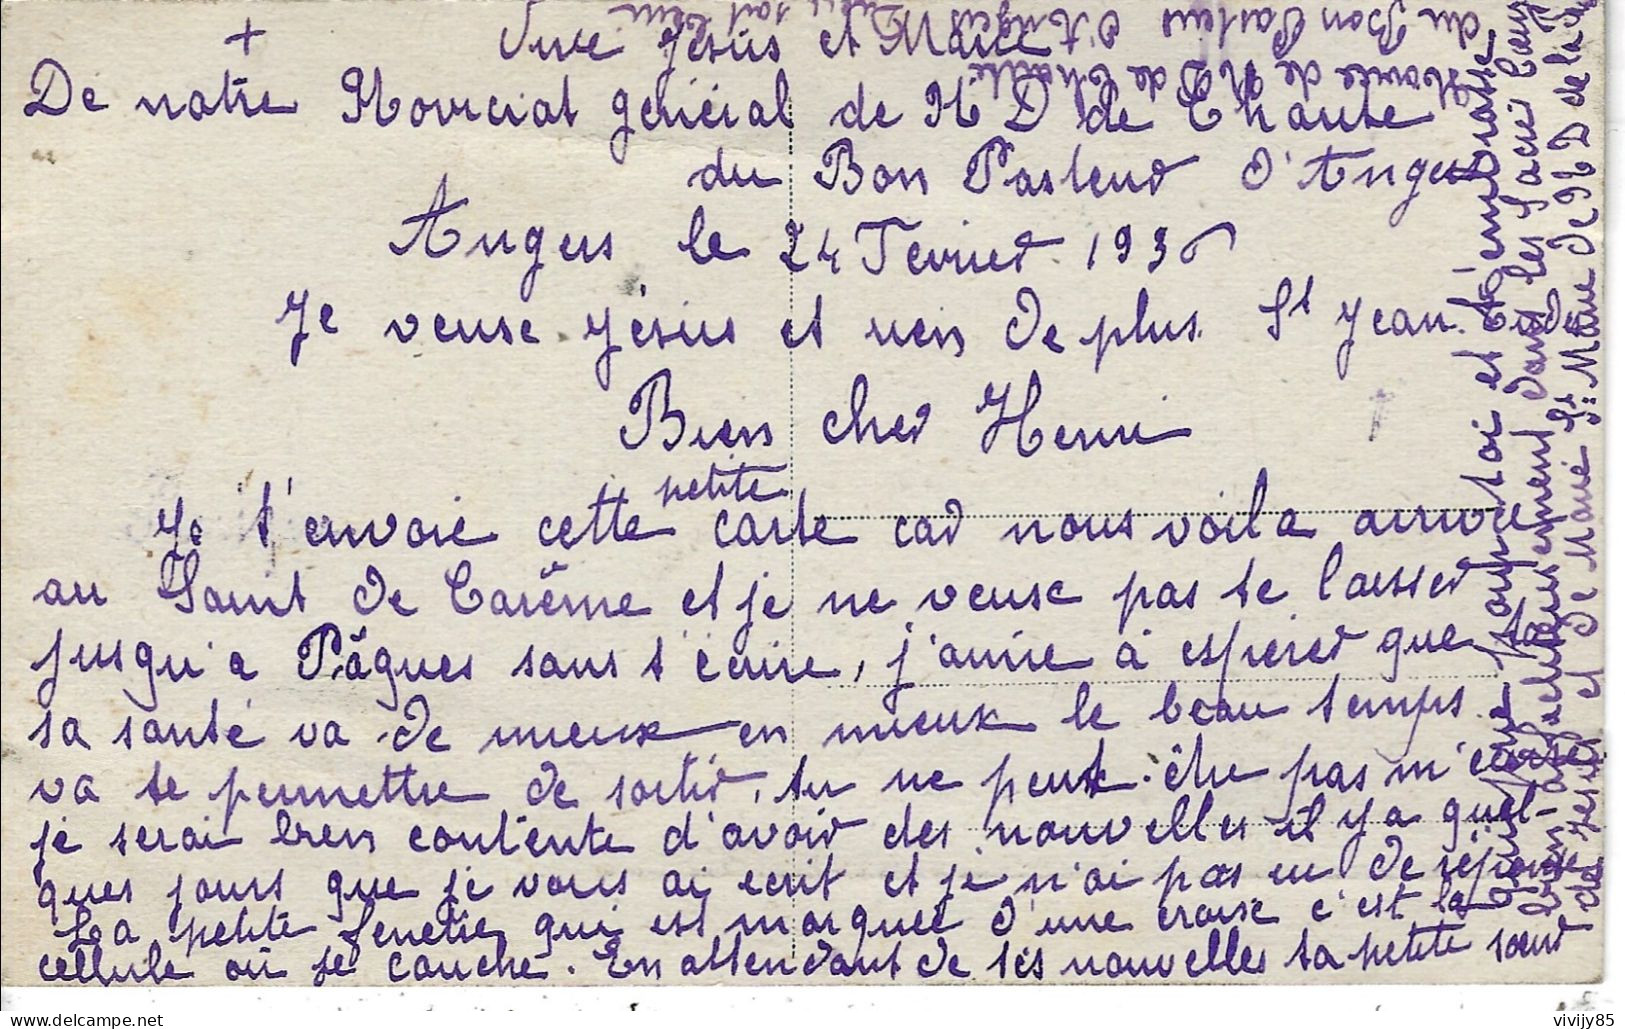 +
Vive Jésus et Marie
De notre Noviciat général de N D de Charité
du Bon Pasteur d'Angers
Angers le 24 Fevrier 1936
Je veuse Jésus et rien de plus. St Jean.
Bien cher Henri
petite
Je t'envoie cette carte car nous voila arrivée
au Saint de Carême et je ne veuse pas te laisser
jusqu'a Pâques sans t'écrire, j'aime à espérer que
ta santé va de mieux en mieux le beau temps
va te permettre de sortir, tu ne peut-être pas m'écrire
je serai bien contente d'avoir des nouvelles il y a quel-
ques jours que je vous ai ecrit et je n'ai pas eu de réponse
La petite fenetre qui est marquée d'une croise c'est la
cellule où je couche. En attendant de tes nouvelles ta petite sœur
qui prie pour toi et t'embrasse
bien affectueusement dans les Sacré Cœur
de Jésus et de Marie Sr Marie de N D de la
Novice de N D de Charité
du Bon Pasteur d'Angers
vivijy85